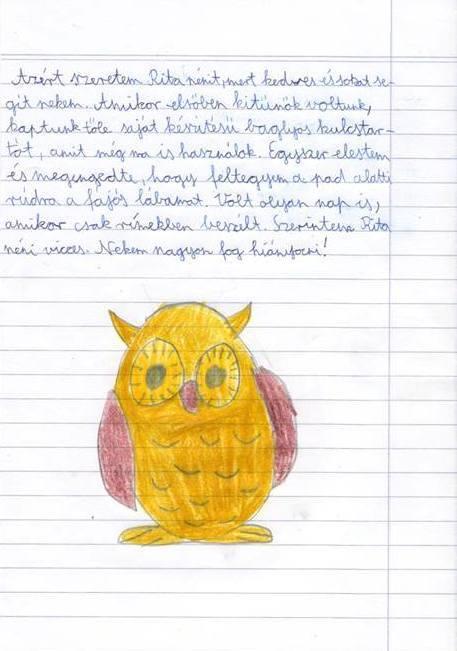 Azért szeretem Rita nénit, mert kedves és sokat se-
gít nekem. Amikor elsőben kitűnők voltunk,
kaptunk tőle saját készítésű baglyos kulcstar-
tót, amit még ma is használok. Egyszer elestem
és megengedte, hogy feltegyem a pad alatti
rúdra a fájós lábamat. Volt olyan nap is,
amikor csak rímekben beszélt. Szerintem Rita
néni vicces. Nekem nagyon fog hiányozni!